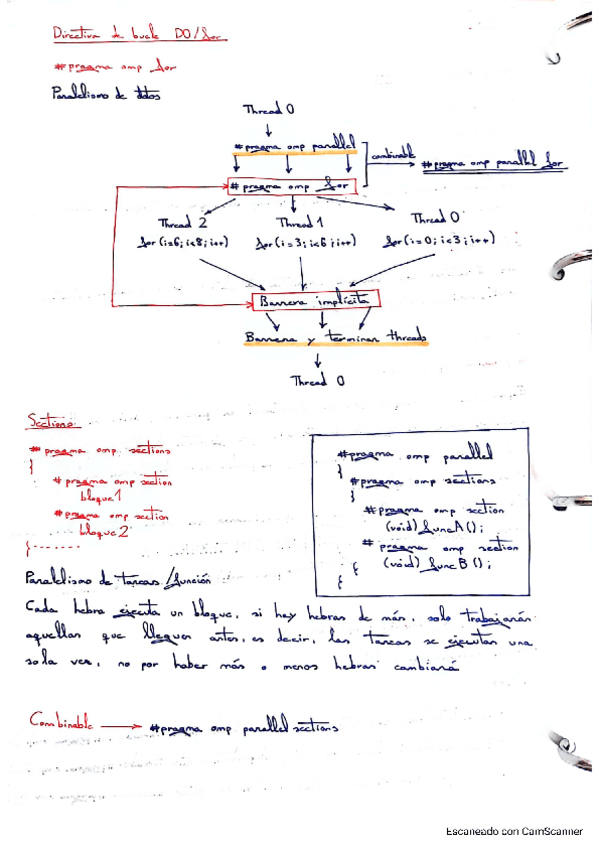 Directiva de bucle DO/for
#pragma omp for
Paralelismo de datos
Thread 0
#pragma omp parallel
combinable
#pragma omp parallel for
#pragma omp for
Thread 2 Thread 1 Thread 0
for(i=6; i<8; i++) for(i=3; i<6; i++) for(i=0; i<3; i++)
Barrera implícita
Barrera y terminan threads
Thread 0
Sections
#pragma omp sections
{
#pragma omp section
bloque1
#pragma omp section
bloque2
}
#pragma omp parallel
{
#pragma omp sections
{
#pragma omp section
(void) funcA();
#pragma omp section
(void) funcB();
}
}
Paralelismo de tareas/función
Cada hebra ejecuta un bloque, si hay hebras de más, solo trabajarán
aquellas que lleguen antes, es decir, las tareas se ejecutan una
sola vez, no por haber más o menos hebras cambiará
Combinable → #pragma omp parallel sections
Escaneado con CamScanner